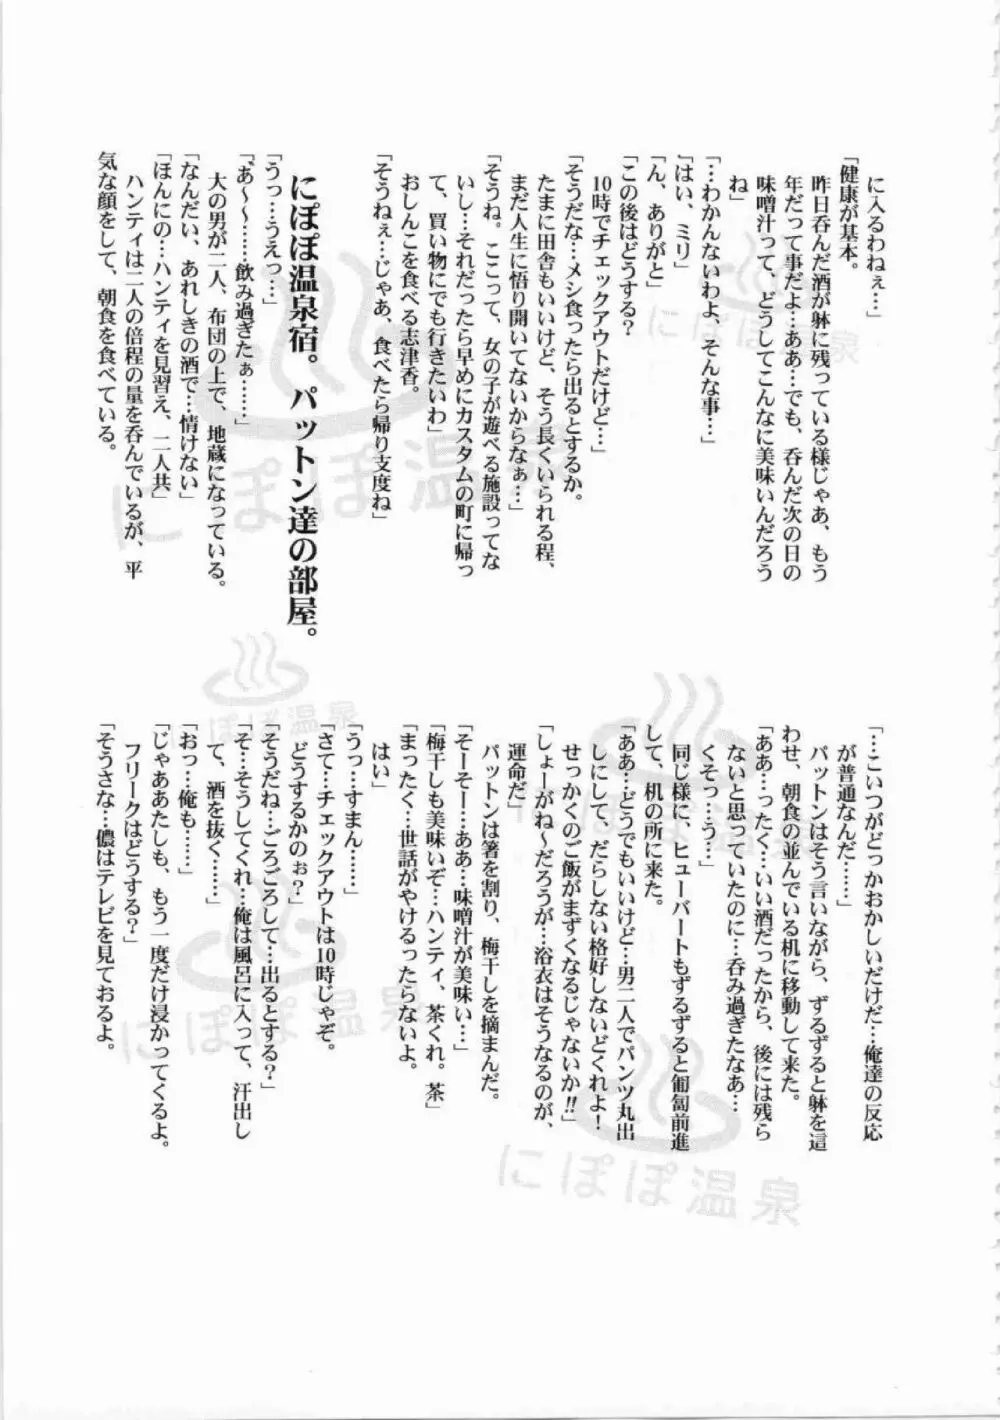 に入るわねぇ…」
「健康が基本。
昨日呑んだ酒が躰に残っている様じゃあ、もう
年だって事だよ…ああ…でも、呑んだ次の日の
味噌汁って、どうしてこんなに美味いんだろう
ね」
「…わかんないわよ、そんな事…」
「はい、ミリ」
「ん、ありがと」
「この後はどうする？
10時でチェックアウトだけど…」
「そうだな…メシ食ったら出るとするか。
たまに田舎もいいけど、そう長くいられる程、
まだ人生に悟り開いてないからなぁ…」
「そうね。ここって、女の子が遊べる施設ってな
いし…それだったら早めにカスタムの町に帰っ
て、買い物にでも行きたいわ」
おしんこを食べる志津香。
「そうねぇ…じゃあ、食べたら帰り支度ね」
にぽぽ温泉宿。パットン達の部屋。
「うっ…うえっ…」
「あ～～～…飲み過ぎたぁ……」
大の男が二人、布団の上で、地蔵になっている。
「なんだい、あれしきの酒で…情けない」
「ほんにの…ハンティを見習え、二人共」
ハンティは二人の倍程の量を呑んでいるが、平
気な顔をして、朝食を食べている。
「…こいつがどっかおかしいだけだ…俺達の反応
が普通なんだ……」
パットンはそう言いながら、ずるずると躰を這
わせ、朝食の並んでいる机に移動して来た。
「ああ…ったく…いい酒だったから、後には残ら
ないと思っていたのに…呑み過ぎたなあ…
くそっ…う…」
同じ様に、ヒューバートもずるずると匍匐前進
して、机の所に来た。
「ああ…どうでもいいけど…男二人でパンツ丸出
しにして、だらしない格好しないどくれよ！
せっかくのご飯がまずくなるじゃないか!!」
「しょーがね～だろうが…浴衣はそうなるのが、
運命だ」
パットンは箸を割り、梅干しを摘まんだ。
「そーそー…ああ…味噌汁が美味い…」
「梅干しも美味いぞ…ハンティ、茶くれ。茶」
「まったく…世話がやけるったらないよ。
はい」
「うっ…すまん……」
「さて…チェックアウトは10時じゃぞ。
どうするかのぉ？」
「そうだね…ごろごろして…出るとする？」
「そ…そうしてくれ…俺は風呂に入って、汗出し
て、酒を抜く……」
「おっ…俺も……」
「じゃああたしも、もう一度だけ浸かってくるよ。
フリークはどうする？」
「そうさな…儂はテレビを見ておるよ。
にぽぽ温泉
にぽぽ温泉
にぽぽ温泉
にぽぽ温泉
にぽぽ温泉
にぽぽ温泉